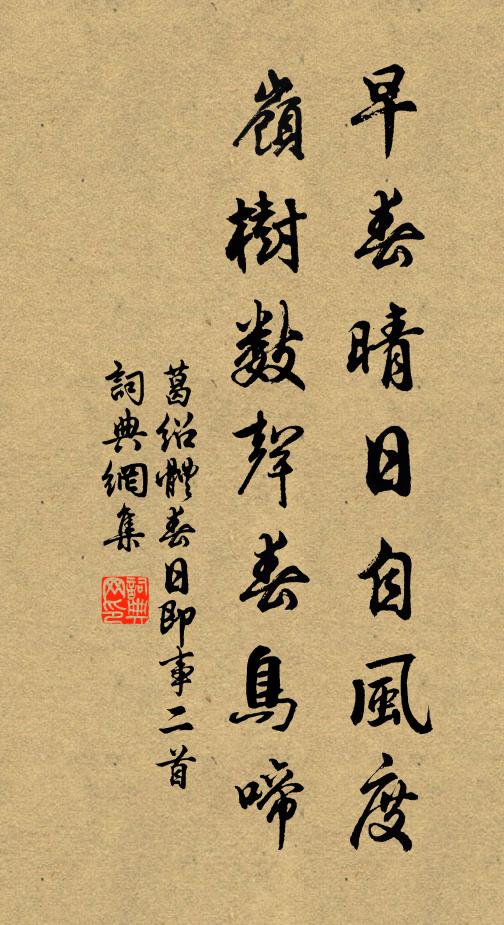 早春晴日自風度
嶺樹數聲春鳥啼
葛紹體春日即事二首
詞典網集
詞典网印